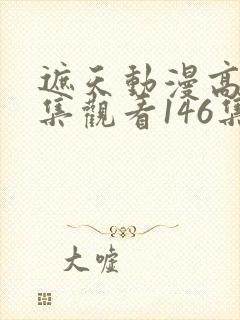 遮天動漫高
集觀看146集
大嘘